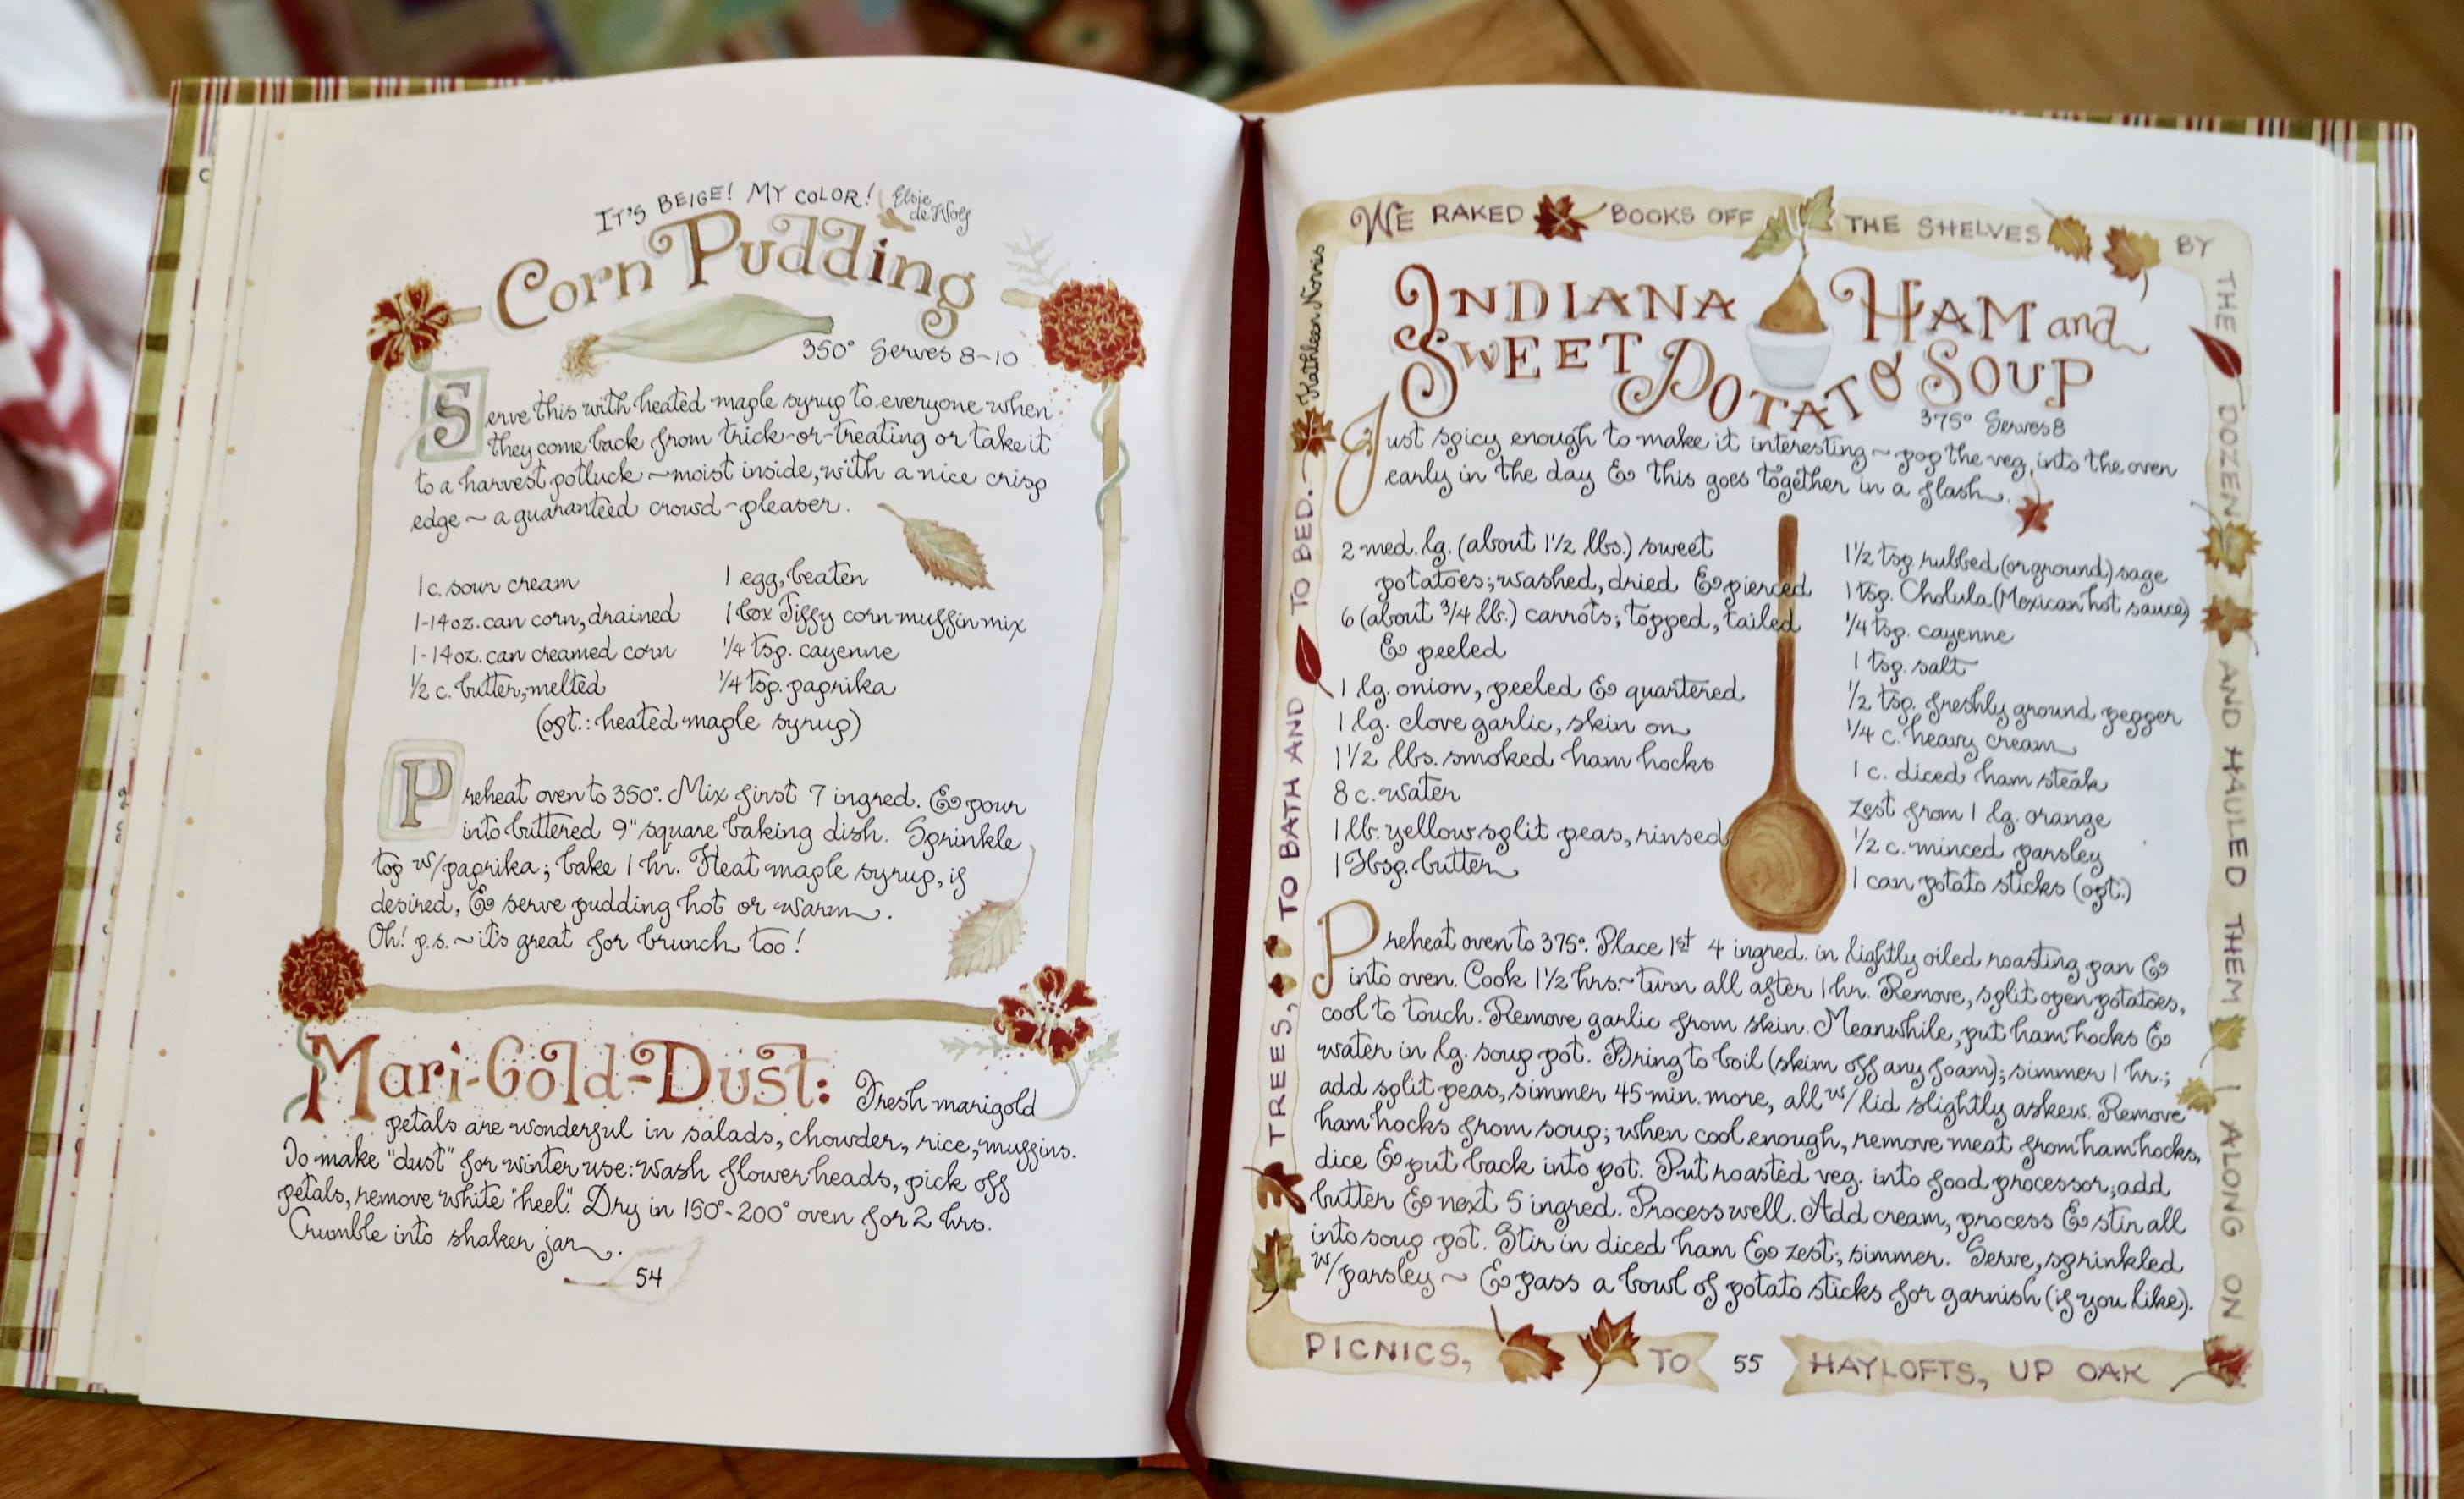 IT'S BEIGE! MY COLOR! Elsie
de Wolf
Corn Pudding
350° Serves 8-10
Serve this with heated maple syrup to everyone when
they come back from trick-or-treating or take it
to a harvest potluck ~ moist inside, with a nice crisp
edge ~ a guaranteed crowd-pleaser.
1 c. sour cream
1-14 oz. can corn, drained
1-14 oz. can creamed corn
1/2 c. butter, melted
1 egg, beaten
1 box Jiffy corn muffin mix
1/4 tsp. cayenne
1/4 tsp. paprika
(opt.: heated maple syrup)
Preheat oven to 350°. Mix first 7 ingred. & pour
into buttered 9" square baking dish. Sprinkle
top w/paprika; bake 1 hr. Heat maple syrup, if
desired, & serve pudding hot or warm.
Oh! p.s. ~ it's great for brunch too!
Mari-Gold-Dust: Fresh marigold
petals are wonderful in salads, chowder, rice, muffins.
To make "dust" for winter use: wash flower heads, pick off
petals, remove white "heel". Dry in 150°-200° oven for 2 hrs.
Crumble into shaker jar.
54
WE RAKED BOOKS OFF THE SHELVES BY
THE DOZEN AND HAULED THEM ALONG ON
PICNICS, TO HAYLOFTS, UP OAK
TREES, TO BATH AND TO BED. ~ Kathleen Norris
INDIANA HAM and
SWEET POTATO SOUP
375° Serves 8
Just spicy enough to make it interesting ~ pop the veg. into the oven
early in the day & this goes together in a flash.
2 med. lg. (about 1 1/2 lbs.) sweet
potatoes; washed, dried & pierced
6 (about 3/4 lb.) carrots; topped, tailed
& peeled
1 lg. onion, peeled & quartered
1 lg. clove garlic, skin on
1 1/2 lbs. smoked ham hocks
8 c. water
1 lb. yellow split peas, rinsed
1 Tbsp. butter
1 1/2 tsp. rubbed (or ground) sage
1 tsp. Cholula (Mexican hot sauce)
1/4 tsp. cayenne
1 tsp. salt
1/2 tsp. freshly ground pepper
1/4 c. heavy cream
1 c. diced ham steak
zest from 1 lg. orange
1/2 c. minced parsley
1 can potato sticks (opt.)
Preheat oven to 375°. Place 1st 4 ingred. in lightly oiled roasting pan &
into oven. Cook 1 1/2 hrs. ~ turn all after 1 hr. Remove, split open potatoes,
cool to touch. Remove garlic from skin. Meanwhile, put ham hocks &
water in lg. soup pot. Bring to boil (skim off any foam); simmer 1 hr.;
add split peas, simmer 45 min. more, all w/lid slightly askew. Remove
ham hocks from soup; when cool enough, remove meat from ham hocks,
dice & put back into pot. Put roasted veg. into food processor; add
butter & next 5 ingred. Process well. Add cream, process & stir all
into soup pot. Stir in diced ham & zest; simmer. Serve, sprinkled
w/parsley ~ & pass a bowl of potato sticks for garnish (if you like).
55